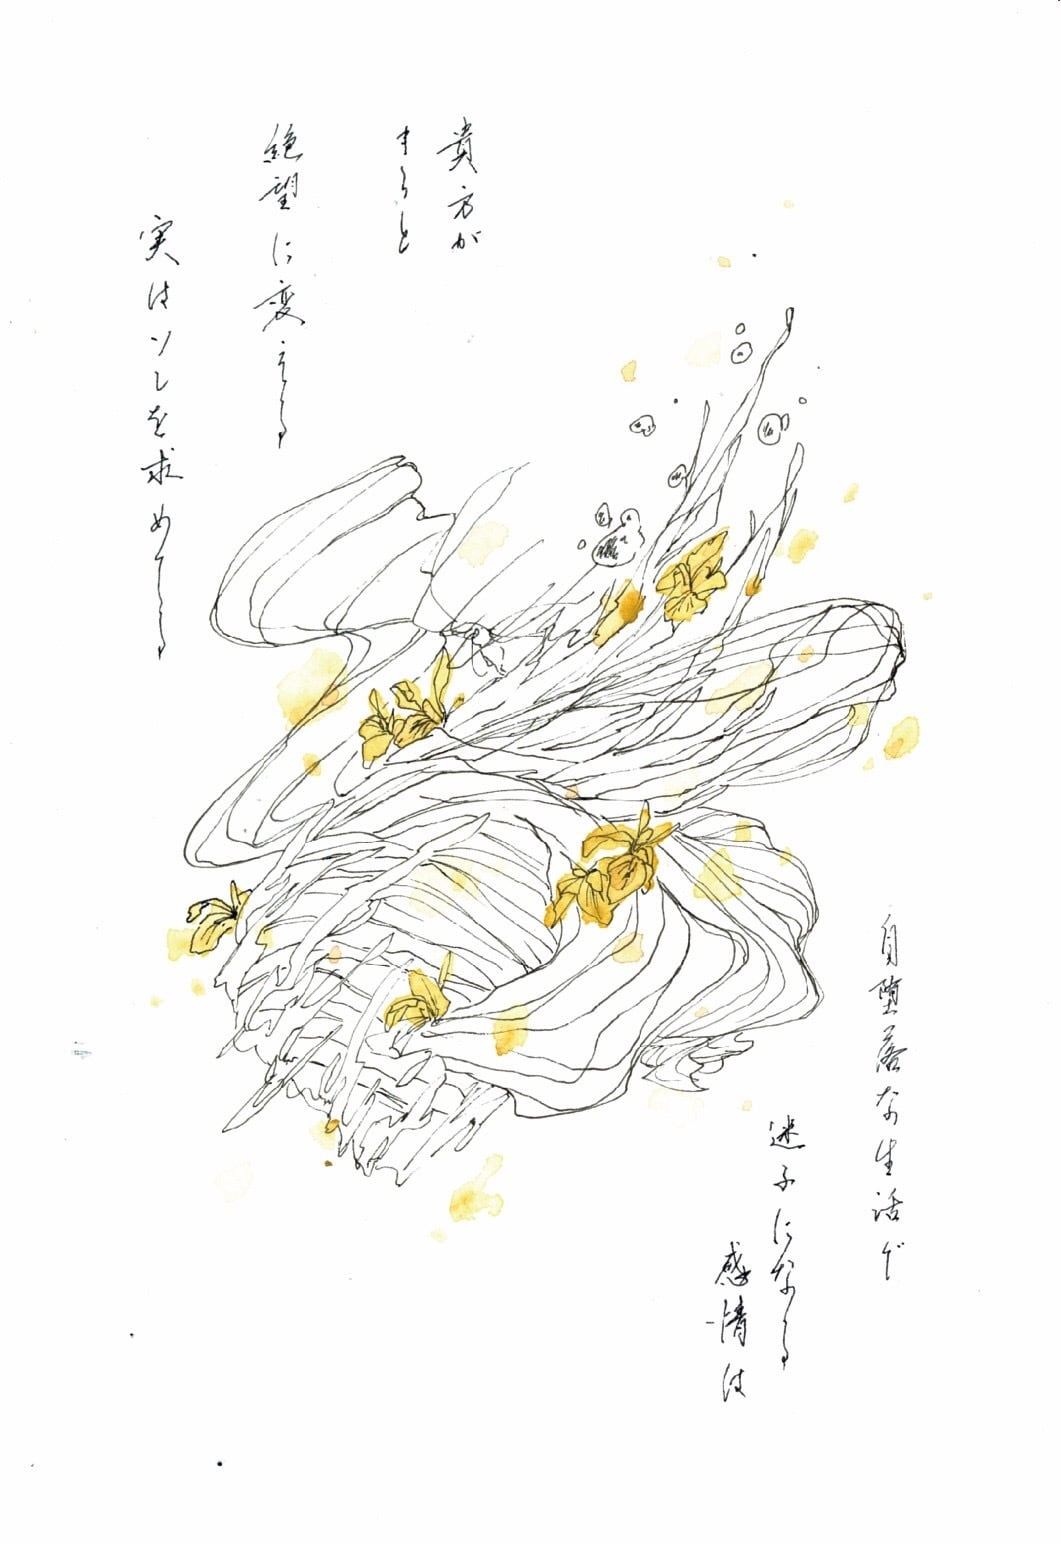 自堕落な生活で
迷子になる
感情は
貴方が
すらと
絶望に変える
実はソレを求めてる